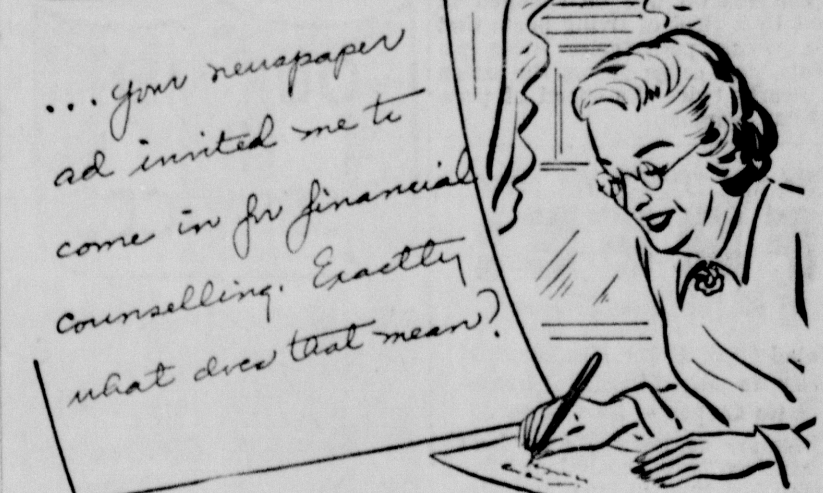 ... your newspaper
ad invited me to
come in for financial
counselling. Exactly
what does that mean?